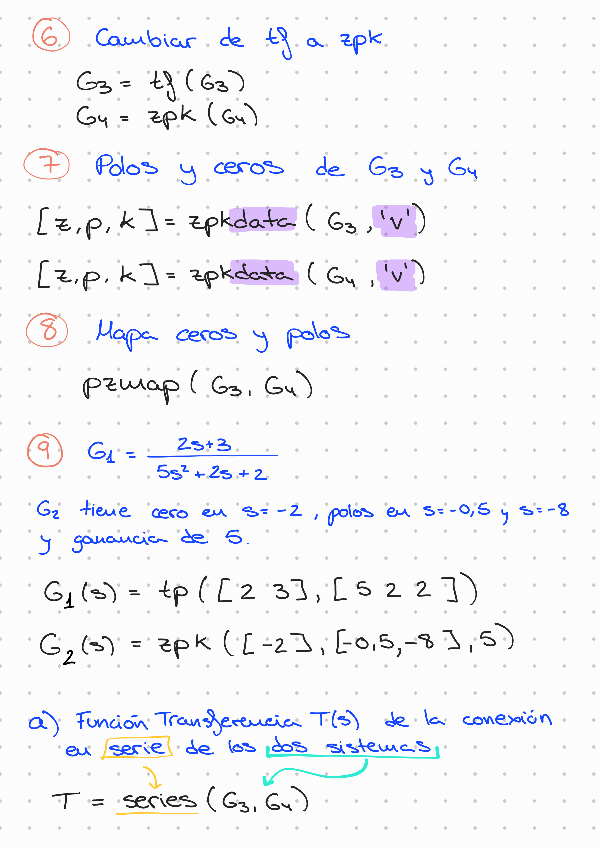 6 Cambiar de tf a zpk
G3 = tf (G3)
G4 = zpk (G4)
7 Polos y ceros de G3 y G4
[z, p, k] = zpkdata ( G3 , 'v')
[z, p, k] = zpkdata ( G4 , 'v')
8 Mapa ceros y polos
pzmap ( G3, G4 )
9 G1 = 2s+3 / 5s² + 2s + 2
G2 tiene cero en s= -2 , polos en s=-0,5 y s=-8
y ganancia de 5.
G1 (s) = tp ( [ 2 3 ] , [ 5 2 2 ] )
G2 (s) = zpk ( [ -2 ] , [-0,5, -8 ] , 5 )
a) Función Transferencia T(s) de la conexión
en serie de los dos sistemas
T = series ( G3, G4 )